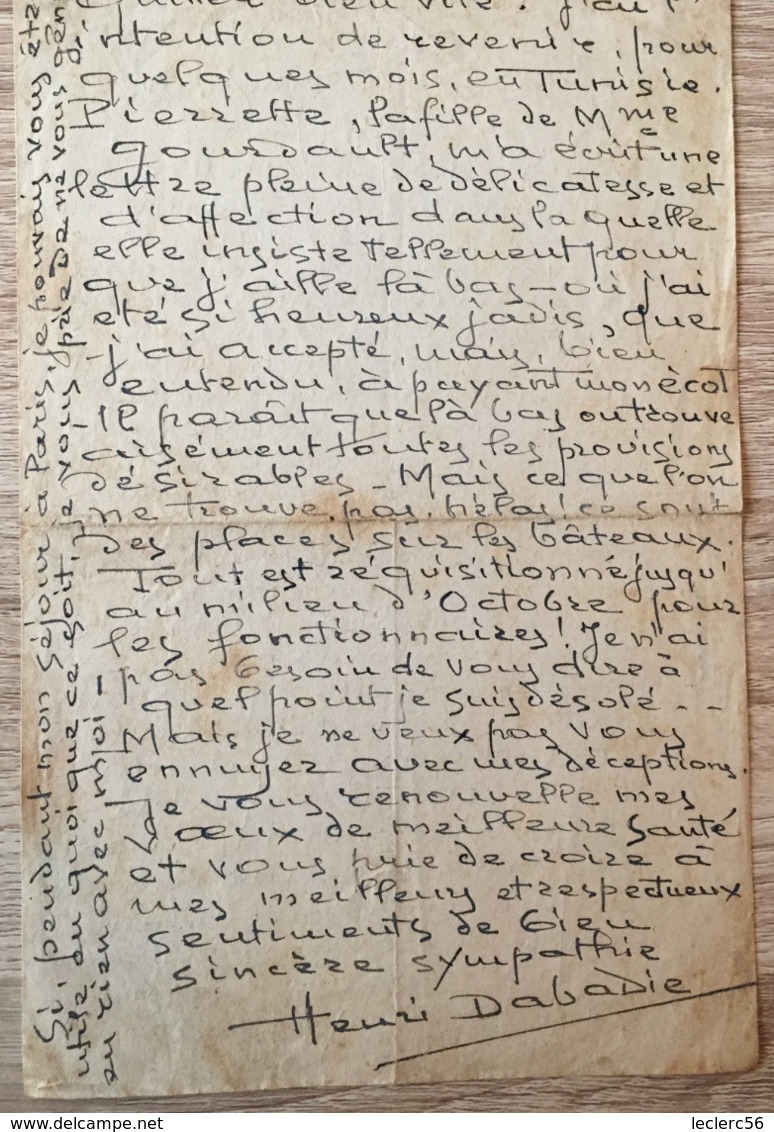 bien vite. J'ai l'
intention de revenir, pour
quelques mois, en Tunisie.
Pierrette, la fille de Mme
Gourdault, m'a écrit une
lettre pleine de délicatesse et
d'affection dans la quelle
elle insiste tellement pour
que j'aille là bas - où j'ai
été si heureux jadis, que
j'ai accepté, mais, bien
entendu, à payant mon écot
Il paraît que là bas on trouve
aisément toutes les provisions
désirables - Mais ce que l'on
ne trouve pas, hélas! ce sont
des places sur les bâteaux.
Tout est réquisitionné jusqu'
au milieu d'Octobre pour
les fonctionnaires! Je n'ai
pas besoin de vous dire à
quel point je suis désolé...
Mais je ne veux pas vous
ennuyer avec mes déceptions.
Je vous renouvelle mes
vœux de meilleure santé
et vous prie de croire à
mes meilleurs et respectueux
sentiments de bien
sincère sympathie
Henri Dabadie
Si, pendant mon séjour à Paris, je pouvais vous être
utile en quoi que ce soit, je vous prie de ne vous gên
en rien avec moi -
leclerc56